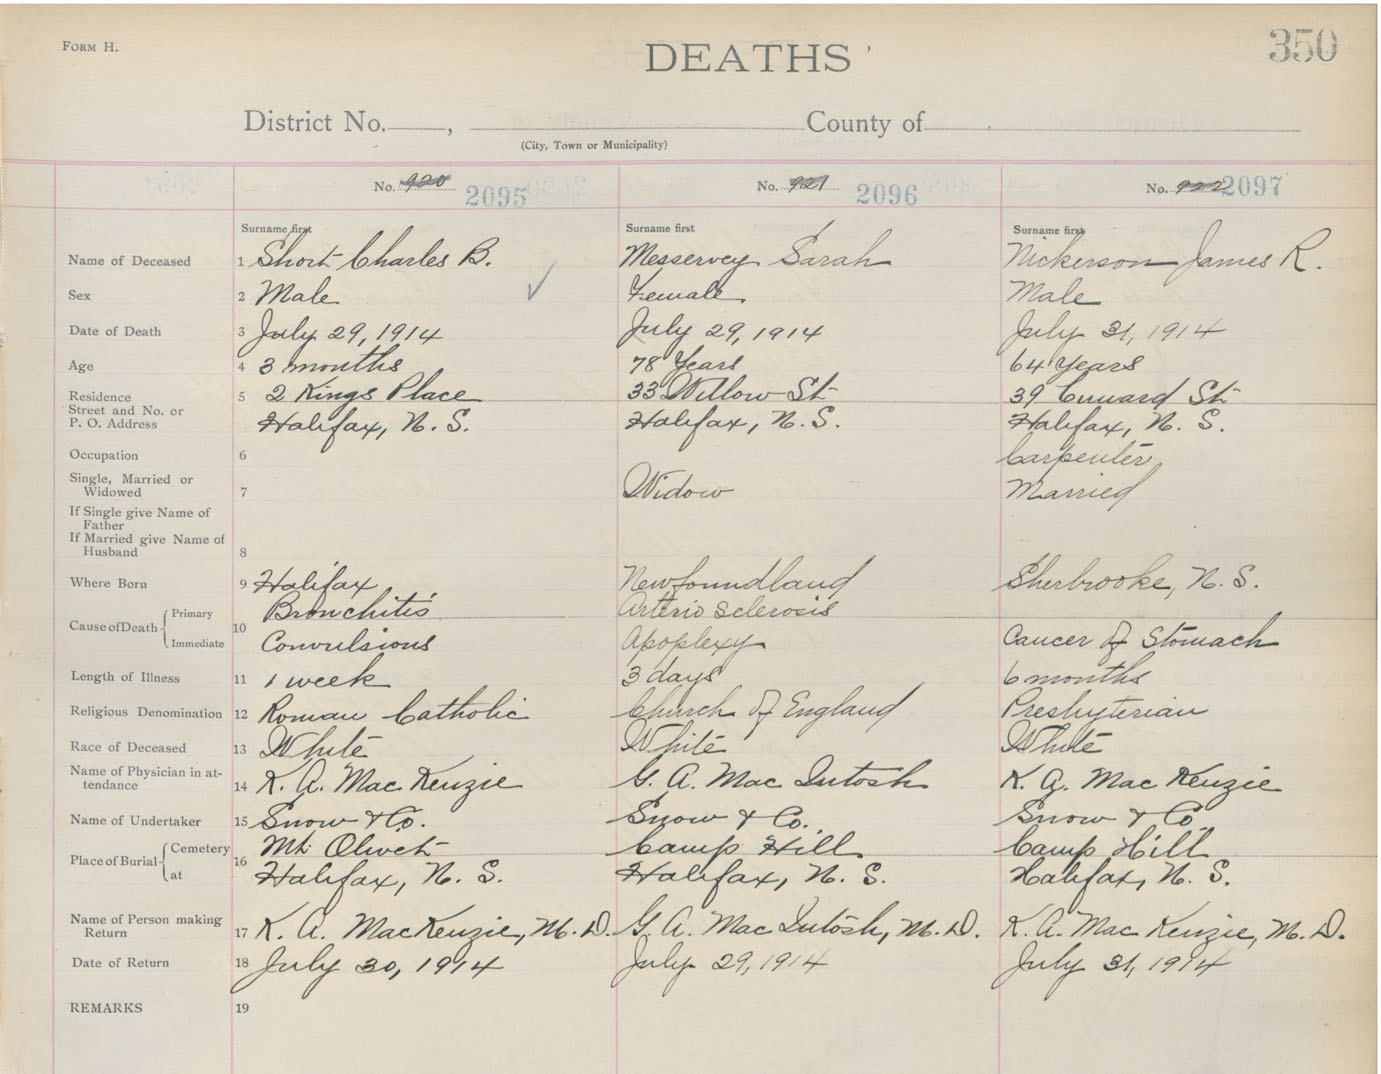 FORM H.
350
DEATHS
District No. , County of
(City, Town or Municipality)
No. 920 2095 No. 921 2096 No. 922 2097
Surname first Surname first Surname first
Name of Deceased 1 Short Charles B. Messervey Sarah Nickerson James R.
Sex 2 Male Female Male
Date of Death 3 July 29, 1914 July 29, 1914 July 31, 1914
Age 4 3 months 78 Years 64 Years
Residence 5 2 Kings Place 33 Willow St. 39 Cunard St.
Street and No. or
P. O. Address Halifax, N. S. Halifax, N. S. Halifax, N. S.
Occupation 6 Carpenter
Single, Married or
Widowed 7 Widow Married
If Single give Name of
Father
If Married give Name of
Husband 8
Where Born 9 Halifax Newfoundland Sherbrooke, N. S.
Primary Bronchitis Arterio Sclerosis
Cause of Death 10
Immediate Convulsions Apoplexy Cancer of Stomach
Length of Illness 11 1 week 3 days 6 months
Religious Denomination 12 Roman Catholic Church of England Presbyterian
Race of Deceased 13 White White White
Name of Physician in at-
tendance 14 K. A. MacKenzie G. A. Mac Intosh K. A. Mac Kenzie
Name of Undertaker 15 Snow & Co. Snow & Co. Snow & Co
Cemetery Mt. Olivet Camp Hill Camp Hill
Place of Burial 16
at Halifax, N. S. Halifax, N. S. Halifax, N. S.
Name of Person making
Return 17 K. A. MacKenzie, M. D. G. A. Mac Intosh, M. D. K. A. Mac Kenzie, M. D.
Date of Return 18 July 30, 1914 July 29, 1914 July 31, 1914
REMARKS 19